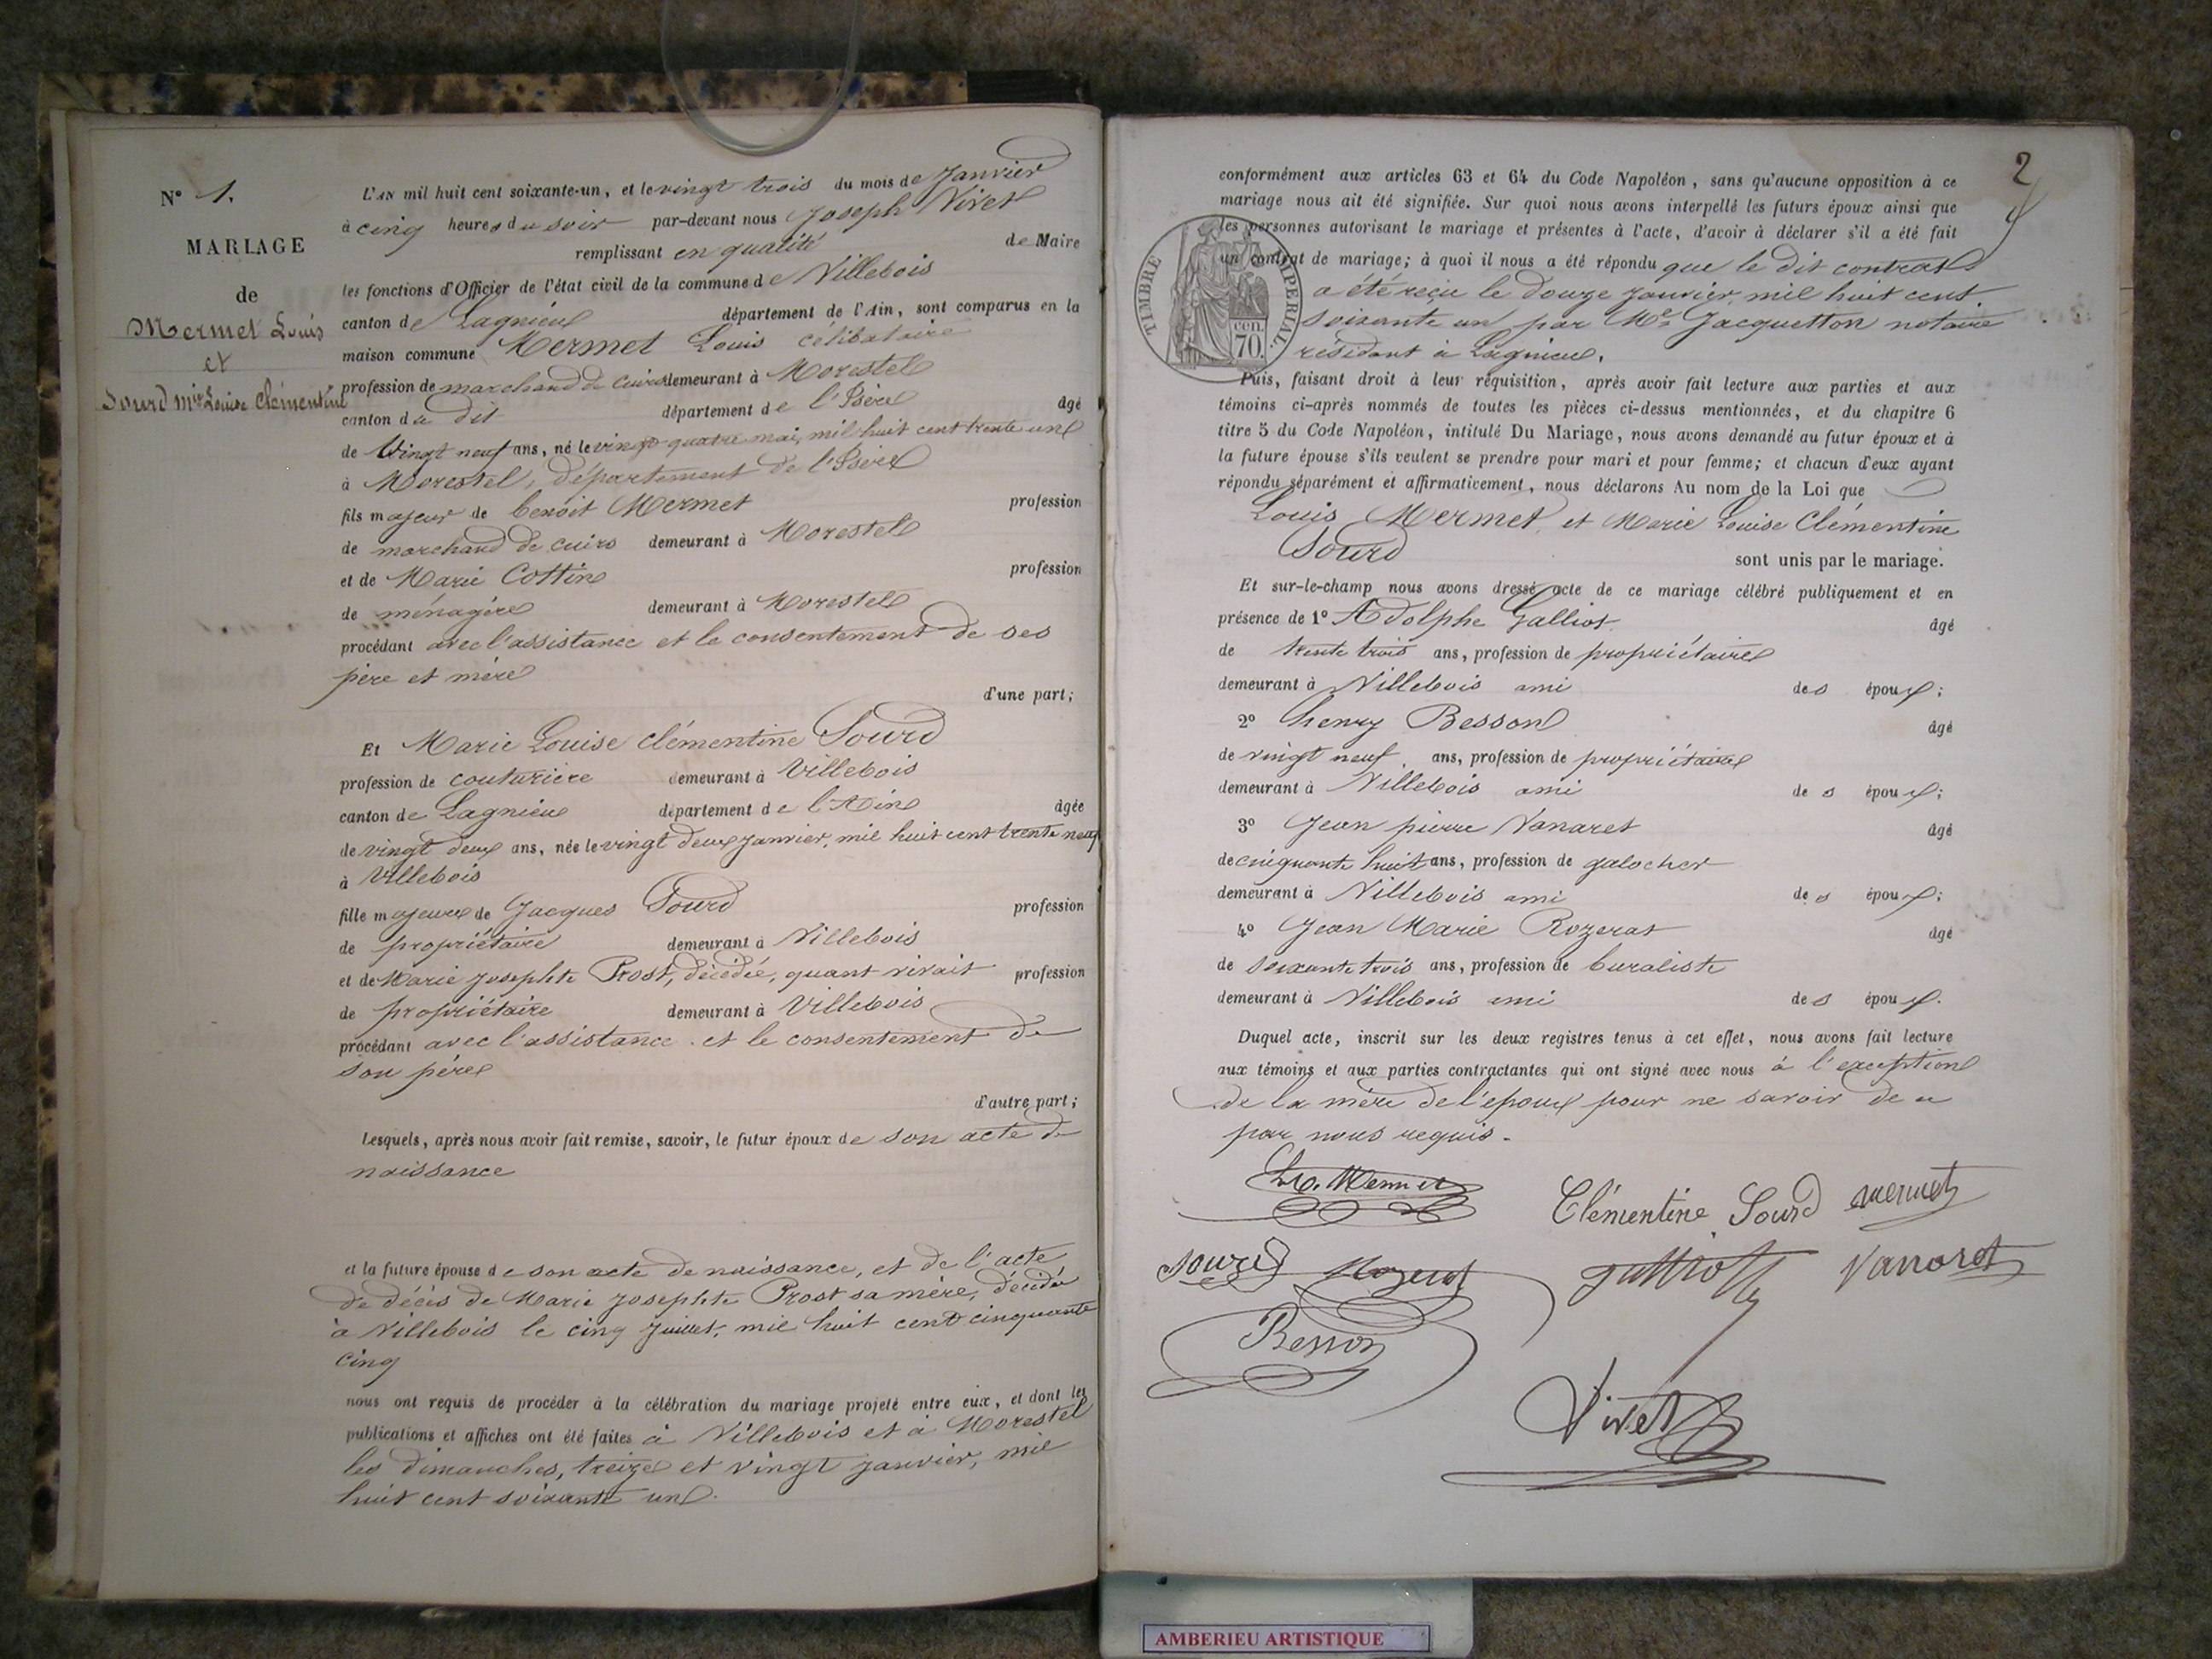 N° 1.
MARIAGE
de
Mermet Louis
et
Sourd Mie Louise Clémentine
L'AN mil huit cent soixante-un, et le vingt trois du mois de Janvier
à cinq heures du soir par-devant nous Joseph Vivet
remplissant en qualité de Maire
les fonctions d'Officier de l'état civil de la commune de Villebois
canton de Lagnieu département de l'Ain, sont comparus en la
maison commune Mermet Louis célibataire
profession de marchand de cuirs demeurant à Morestel
canton du dit département de l'Isère âgé
de Vingt neuf ans, né le vingt quatre mai, mil huit cent trente un
à Morestel, département de l'Isère
fils majeur de benoit Mermet profession
de marchand de cuirs demeurant à Morestel
et de Marie Cottin profession
de ménagère demeurant à Morestel
procédant avec l'assistance et le consentement de ses
père et mère
d'une part;
Et Marie Louise Clémentine Sourd
profession de couturière demeurant à Villebois
canton de Lagnieu département de l'Ain âgée
de vingt deux ans, née le vingt deux Janvier, mil huit cent trente neuf
à Villebois
fille majeure de Jacques Sourd profession
de propriétaire demeurant à Villebois
et de Marie Josephte Prost, décédée, quant vivait profession
de propriétaire demeurant à Villebois
procédant avec l'assistance et le consentement de
son père
d'autre part;
Lesquels, après nous avoir fait remise, savoir, le futur époux de son acte de
naissance
et la future épouse de son acte de naissance, et de l'acte
de décès de Marie Josephte Prost sa mère, décédée
à Villebois le cinq Juillet, mil huit cent cinquante
cinq
nous ont requis de procéder à la célébration du mariage projeté entre eux, et dont les
publications et affiches ont été faites à Villebois et à Morestel
les dimanches, treize et vingt janvier, mil
huit cent soixante un.
2
conformément aux articles 63 et 64 du Code Napoléon, sans qu'aucune opposition à ce
mariage nous ait été signifiée. Sur quoi nous avons interpellé les futurs époux ainsi que
les personnes autorisant le mariage et présentes à l'acte, d'avoir à déclarer s'il a été fait
un contrat de mariage; à quoi il nous a été répondu que le dit contrat
a été reçu le douze janvier, mil huit cent
soixante un par Me Jacquetton notaire
résidant à Lagnieu.
TIMBRE IMPERIAL
cen.
70.
Puis, faisant droit à leur réquisition, après avoir fait lecture aux parties et aux
témoins ci-après nommés de toutes les pièces ci-dessus mentionnées, et du chapitre 6
titre 5 du Code Napoléon, intitulé Du Mariage, nous avons demandé au futur époux et à
la future épouse s'ils veulent se prendre pour mari et pour femme; et chacun d'eux ayant
répondu séparément et affirmativement, nous déclarons Au nom de la Loi que
Louis Mermet et Marie Louise Clémentine
Sourd
sont unis par le mariage.
Et sur-le-champ nous avons dressé acte de ce mariage célébré publiquement et en
présence de 1° Adolphe Galliot âgé
de trente trois ans, profession de propriétaire
demeurant à Villebois ami des époux;
2° henry Besson âgé
de vingt neuf ans, profession de propriétaire
demeurant à Villebois ami des époux;
3° Jean pierre Vanaret âgé
de cinquante huit ans, profession de galocher
demeurant à Villebois ami des époux;
4° Jean Marie Rozerat âgé
de soixante trois ans, profession de buraliste
demeurant à Villebois ami des époux.
Duquel acte, inscrit sur les deux registres tenus à cet effet, nous avons fait lecture
aux témoins et aux parties contractantes qui ont signé avec nous à l'exception
de la mère de l'époux pour ne savoir de ce
par nous requis.
Ls. Mermet
Clémentine Sourd mermet
Sourd Rozerat Galliot Vanaret
Besson
Vivet
AMBERIEU ARTISTIQUE